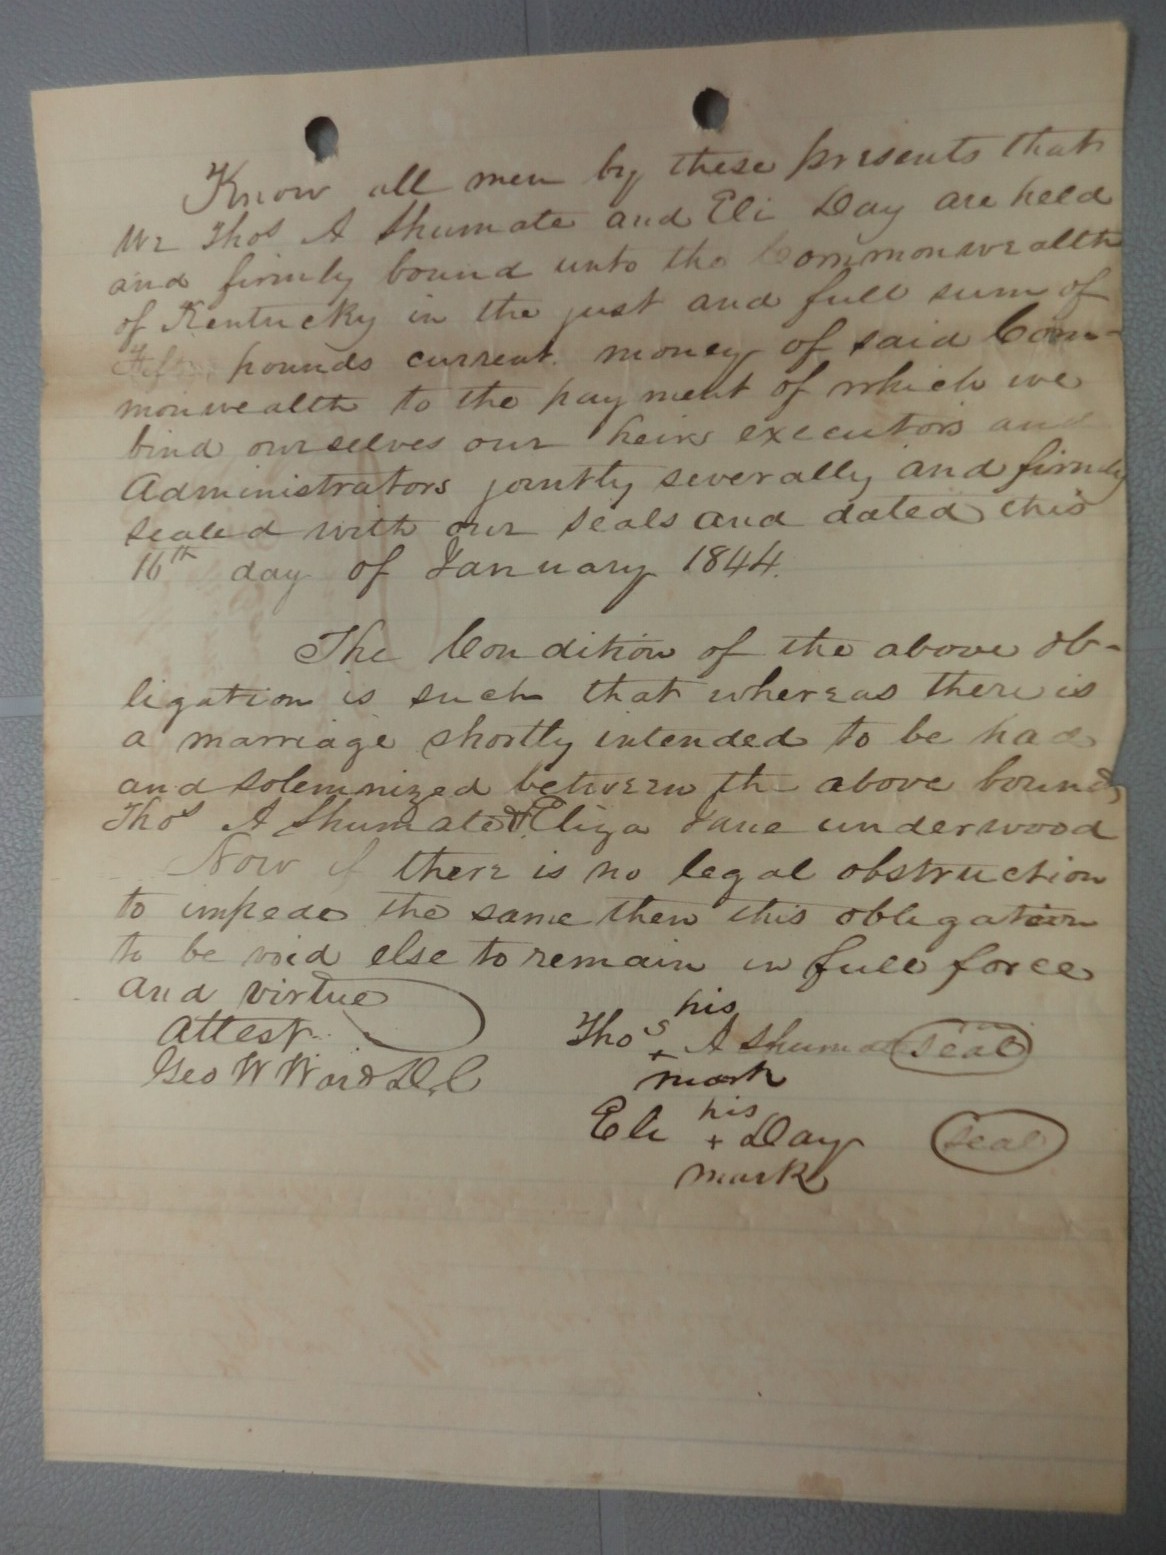 Know all men by these presents that
We Thos A Shumate and Eli Day are held
and firmly bound unto the Commonwealth
of Kentucky in the just and full sum of
pounds current money of said Com-
monwealth to the payment of which we
bind ourselves our heirs executors and
Administrators jointly severally and firmly
sealed with our seals and dated this
16th day of January 1844.
The Condition of the above ob-
ligation is such that whereas there is
a marriage shortly intended to be had
and solemnized between the above bound
Thos A Shumate & Eliza Jane underwood
Now if there is no legal obstruction
to impede the same then this obligation
to be void else to remain in full force
and virtue
his
Attest
Thos + A Shumate seal
mark
Geo W Ward D.C
his
Eli + Day seal
mark